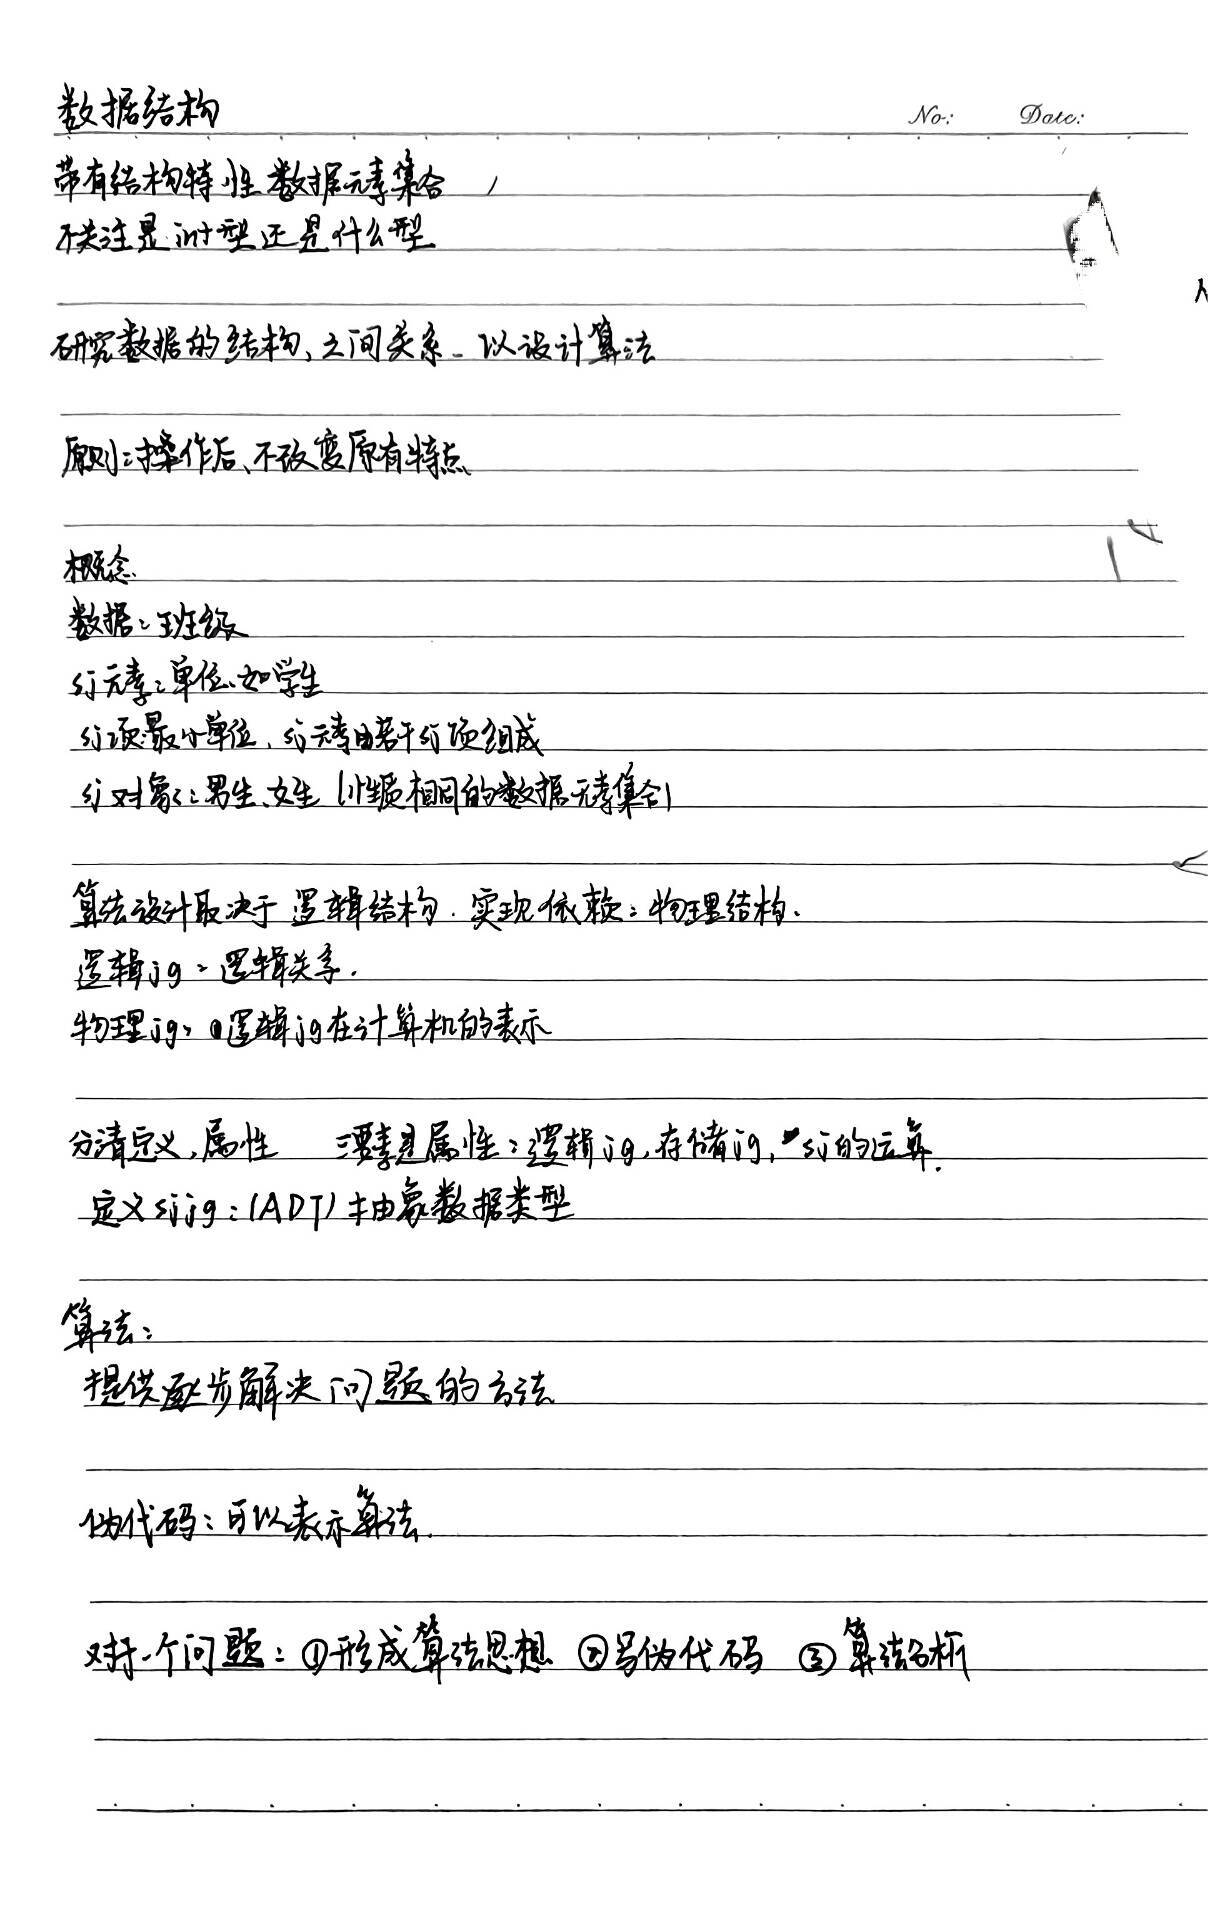 数据结构
No: Date:
带有结构特性数据元素集合
不关注是int型还是什么型
研究数据的结构、之间关系-以设计算法
原则:操作后、不改变原有特点
概念
数据:班级
sj元素:单位、如学生
sj项:最小单位、sj元素由若干sj项组成
sj对象:男生、女生(性质相同的数据元素集合)
算法设计取决于逻辑结构.实现依赖:物理结构.
逻辑jg:逻辑关系.
物理jg:逻辑jg在计算机的表示
分清定义,属性 三要素是属性:逻辑jg,存储jg,sj的运算.
定义sjjg:(ADT)抽象数据类型
算法:
提供逐步解决问题的方法
伪代码:可以表示算法.
对于一个问题:①形成算法思想 ②写伪代码 ③算法分析